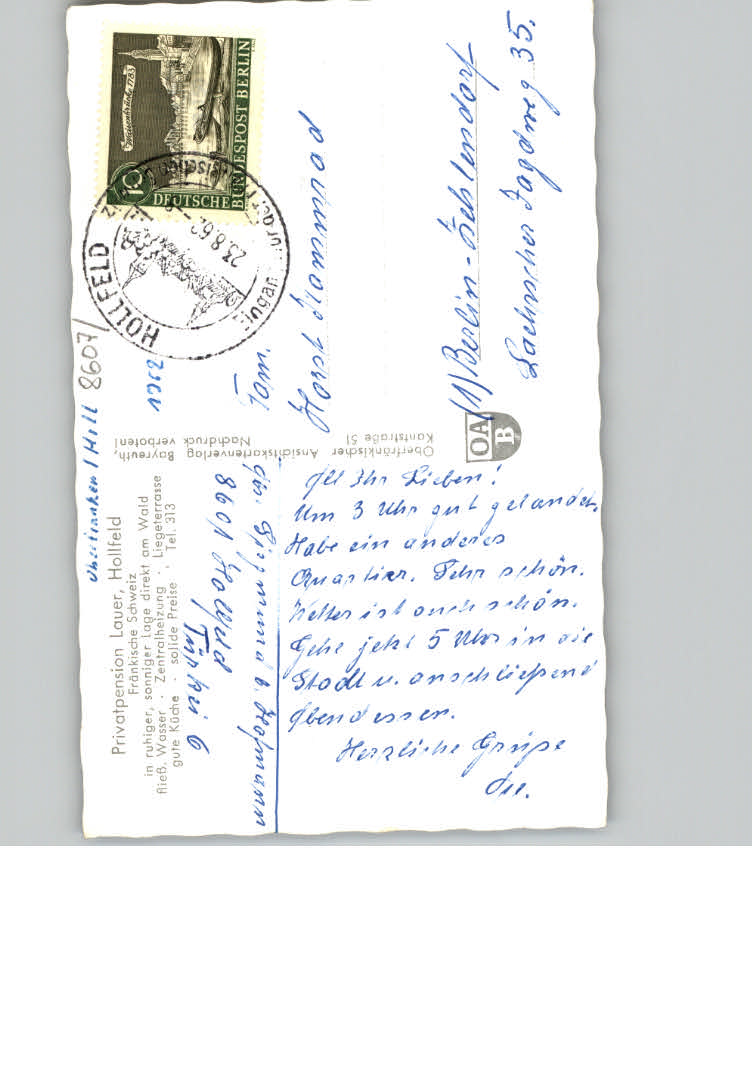 Privatpension Lauer, Hollfeld
Fränkische Schweiz
in ruhiger, sonniger Lage direkt am Wald
fließ. Wasser · Zentralheizung · Liegeterrasse
gute Küche · solide Preise · Tel. 313
8607/
1962
8601 Hollfeld
6
All Ihr Lieben!
Um 3 Uhr gut gelandet.
Habe ein anderes
Quartier. Sehr schön.
Wetter ist auch schön.
Gehe jetzt 5 Uhr in die
Stadt u. anschließend
Abendessen.
Herzliche Grüße
Oberfränkischer Ansichtskartenverlag Bayreuth,
Kantstraße 51 Nachdruck verboten!
OA
B
Waisenbrücke 1783
10
DEUTSCHE
BUNDESPOST BERLIN
HOLLFELD
23.8.62
Fam.
Horst Hammrad
(1) Berlin-Zehlendorf
Jagdweg 35.